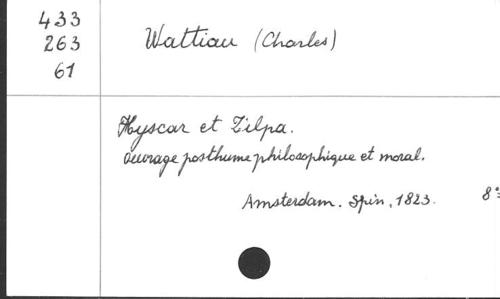 433
263
61
Wattiau (Charles)
Hyscar et Zilpa.
ouvrage posthume philosophique et moral.
Amsterdam. Spin, 1823. 8º